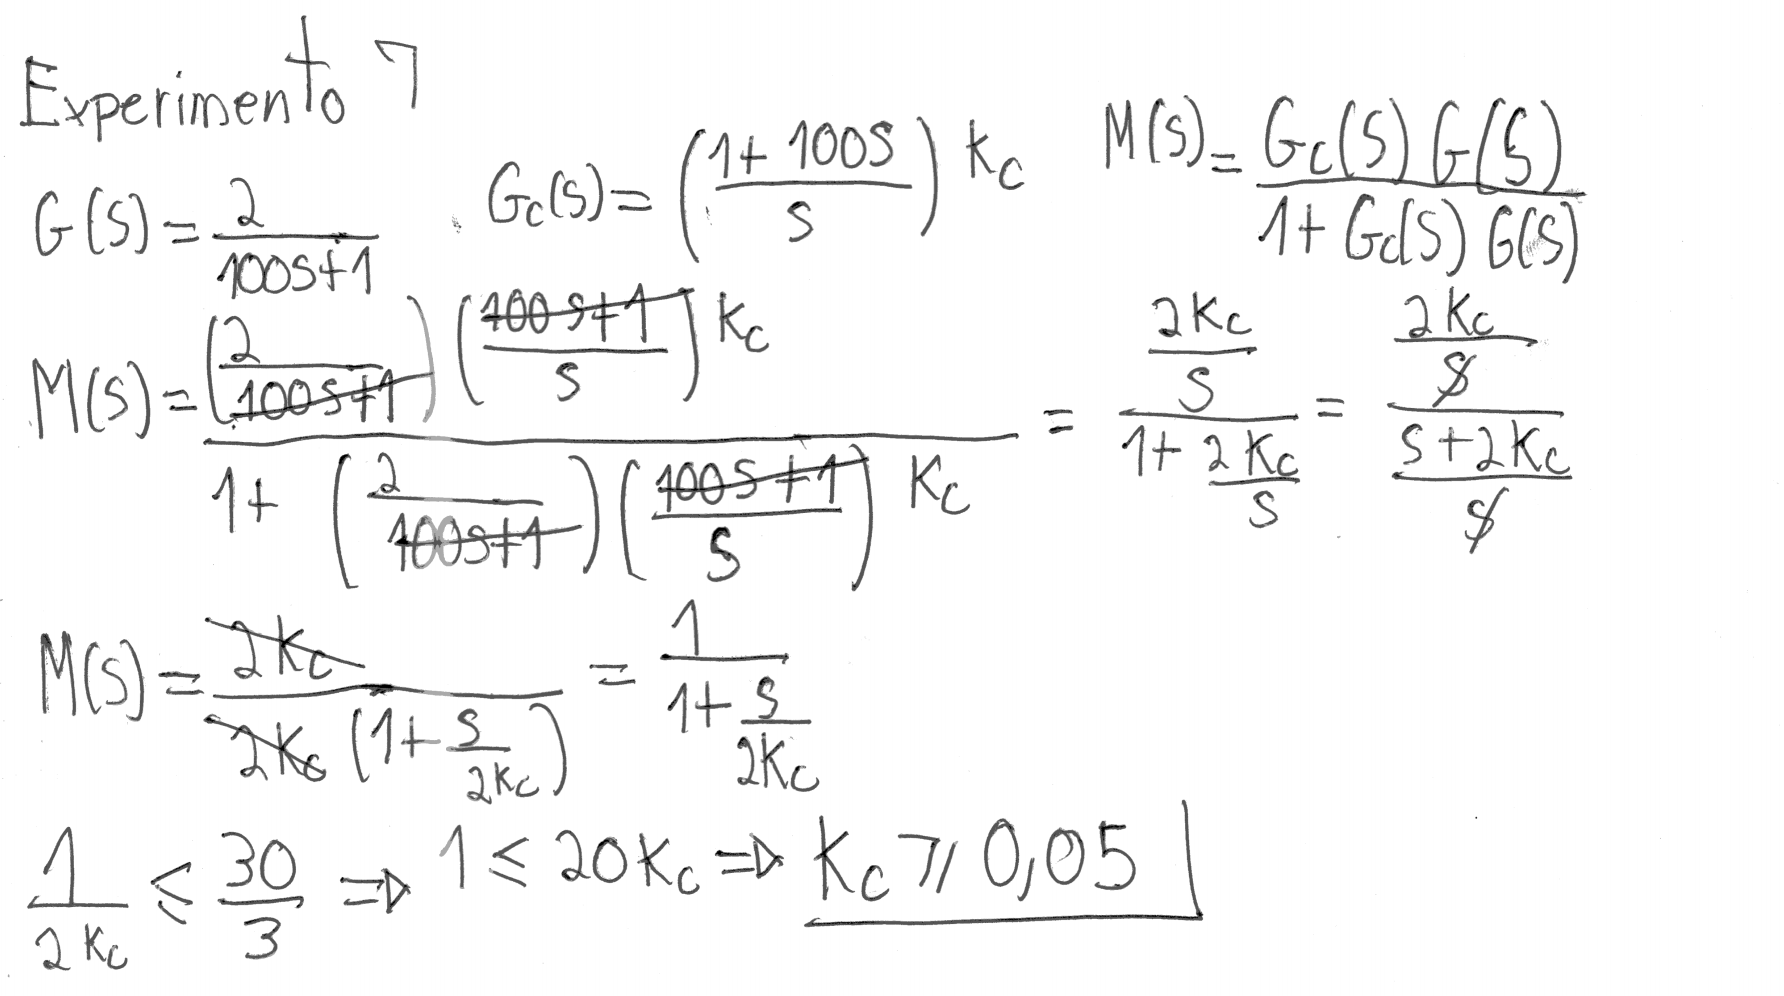 Experimento 7
G(S) = 2/(100S+1)   Gc(S) = ((1+100S)/S) Kc   M(S) = Gc(S) G(S)/(1+Gc(S) G(S))
M(S) = (2/(100S+1)) ((100S+1)/S) Kc / (1 + (2/(100S+1)) ((100S+1)/S) Kc) = (2Kc/S)/(1+2Kc/S) = (2Kc/S)/((S+2Kc)/S)
M(S) = 2Kc/(2Kc (1+S/2Kc)) = 1/(1+S/2Kc)
1/2Kc ≤ 30/3 ⇒ 1 ≤ 20Kc ⇒ Kc ⩾ 0,05